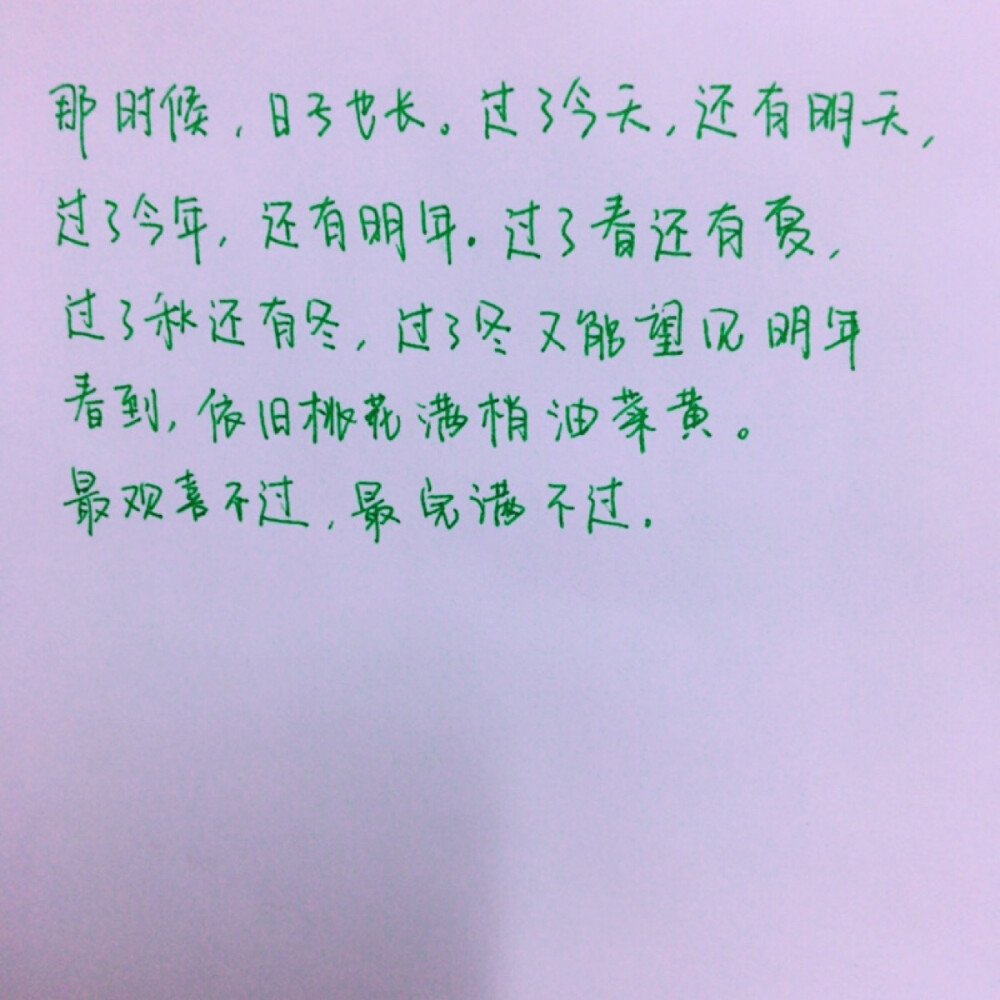 那时候,日子也长。过了今天,还有明天,
过了今年,还有明年.过了春还有夏,
过了秋还有冬,过了冬又能望见明年
春到,依旧桃花满梢油菜黄。
最欢喜不过,最完满不过.